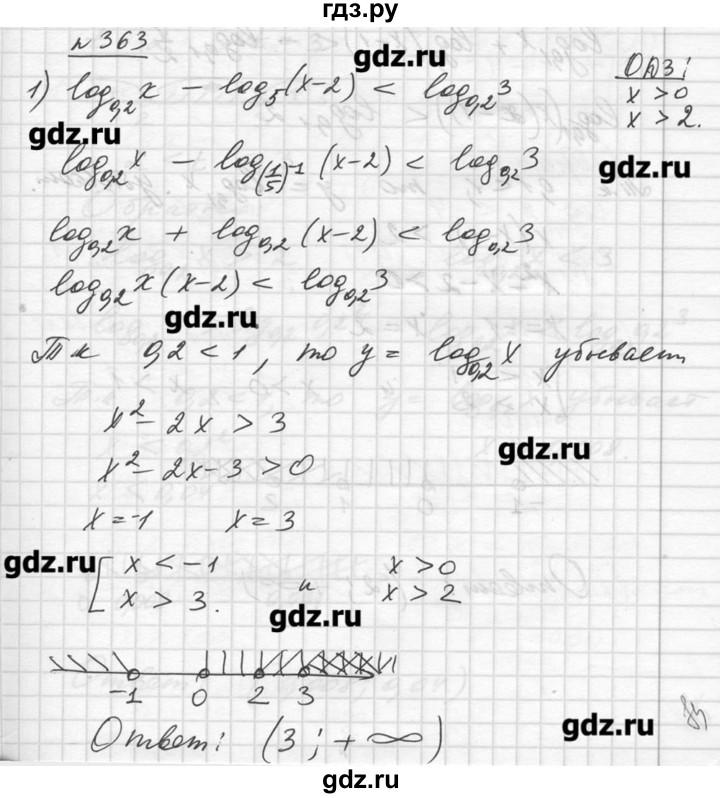 гдз.ру
№ 363
gdz.ru
ОДЗ:
1) log₀,₂ x − log₅(x−2) < log₀,₂ 3
x > 0
gdz.ru
x > 2.
log₀,₂ x − log₍₁/₅₎⁻¹ (x−2) < log₀,₂ 3
gdz.ru
log₀,₂ x + log₀,₂ (x−2) < log₀,₂ 3
log₀,₂ x(x−2) < log₀,₂ 3
gdz.ru
Т к 0,2 < 1, то y = log₀,₂ x убывает
x² − 2x > 3
gdz.ru
x² − 2x − 3 > 0
x = −1 x = 3
gdz.ru
[ x < −1 x > 0
x > 3. и x > 2
gdz.ru
−1 0 2 3
Ответ: (3; +∞)
gdz.ru
gdz.ru